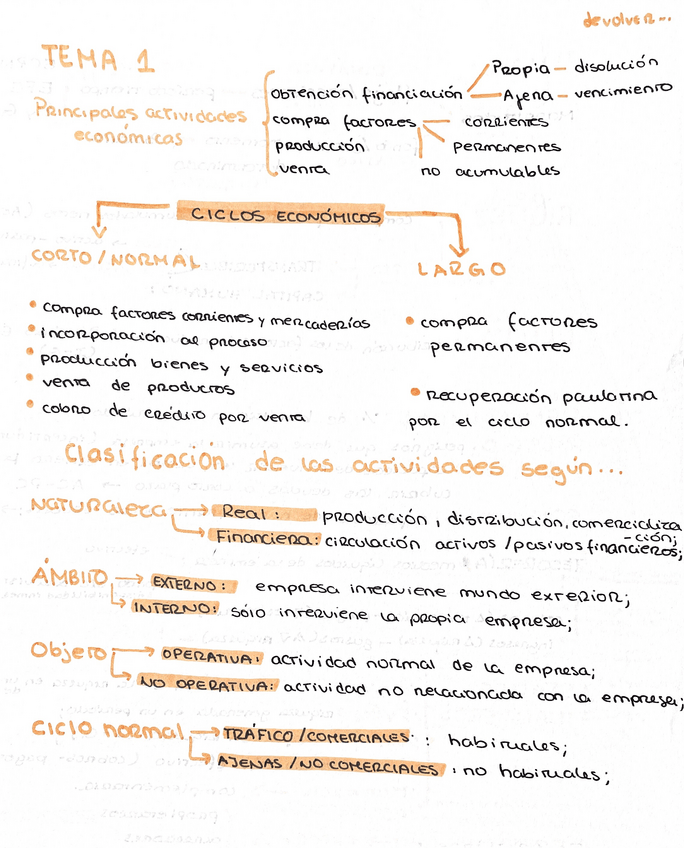 devolver...
TEMA 1
Principales actividades
económicas
obtención financiación
Propia — disolución
Ajena — vencimiento
compra factores
corrientes
permanentes
no acumulables
producción
venta
CICLOS ECONÓMICOS
CORTO / NORMAL
• compra factores corrientes y mercaderías
• incorporación al proceso
• producción bienes y servicios
• venta de productos
• cobro de crédito por venta
LARGO
• compra factores
permanentes
• recuperación paulatina
por el ciclo normal.
Clasificación de las actividades según...
Naturaleza
Real: producción, distribución, comercializa
-ción;
Financiera: circulación activos /pasivos financieros;
ÁMBITO
EXTERNO: empresa interviene mundo exterior;
INTERNO: sólo interviene la propia empresa;
Objeto
OPERATIVA: actividad normal de la empresa;
NO OPERATIVA: actividad no relacionada con la empresa;
Ciclo normal
TRÁFICO /COMERCIALES : habituales;
AJENAS /NO COMERCIALES : no habituales;